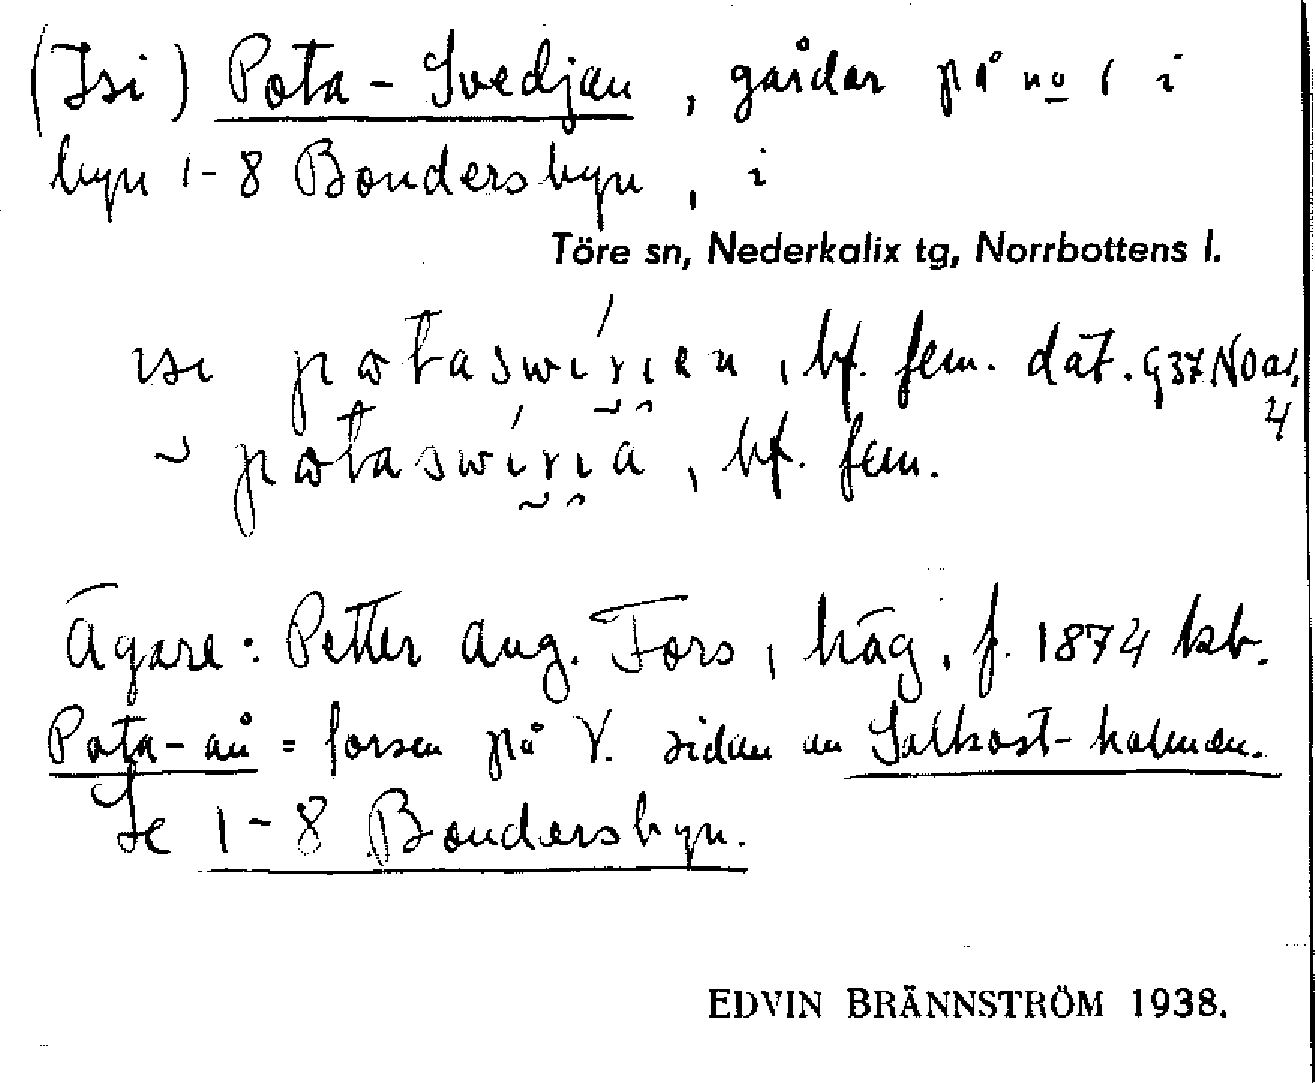 (Isi) Pota-Svedjan, gårdar på no 1 i
byn 1-8 Bondersbyn, i
Töre sn, Nederkalix tg, Norrbottens l.
ısı pωtaswı́rıen, bf. fem. dat.
~ pωtaswı́rıa, bf. fem.
Ägare: Petter Aug. Fors, häg, f. 1874 kb.
Pota-ån = forsen på V. sidan an Saltkost-holmen.
Se 1-8 Bondersbyn.
EDVIN BRÄNNSTRÖM 1938.